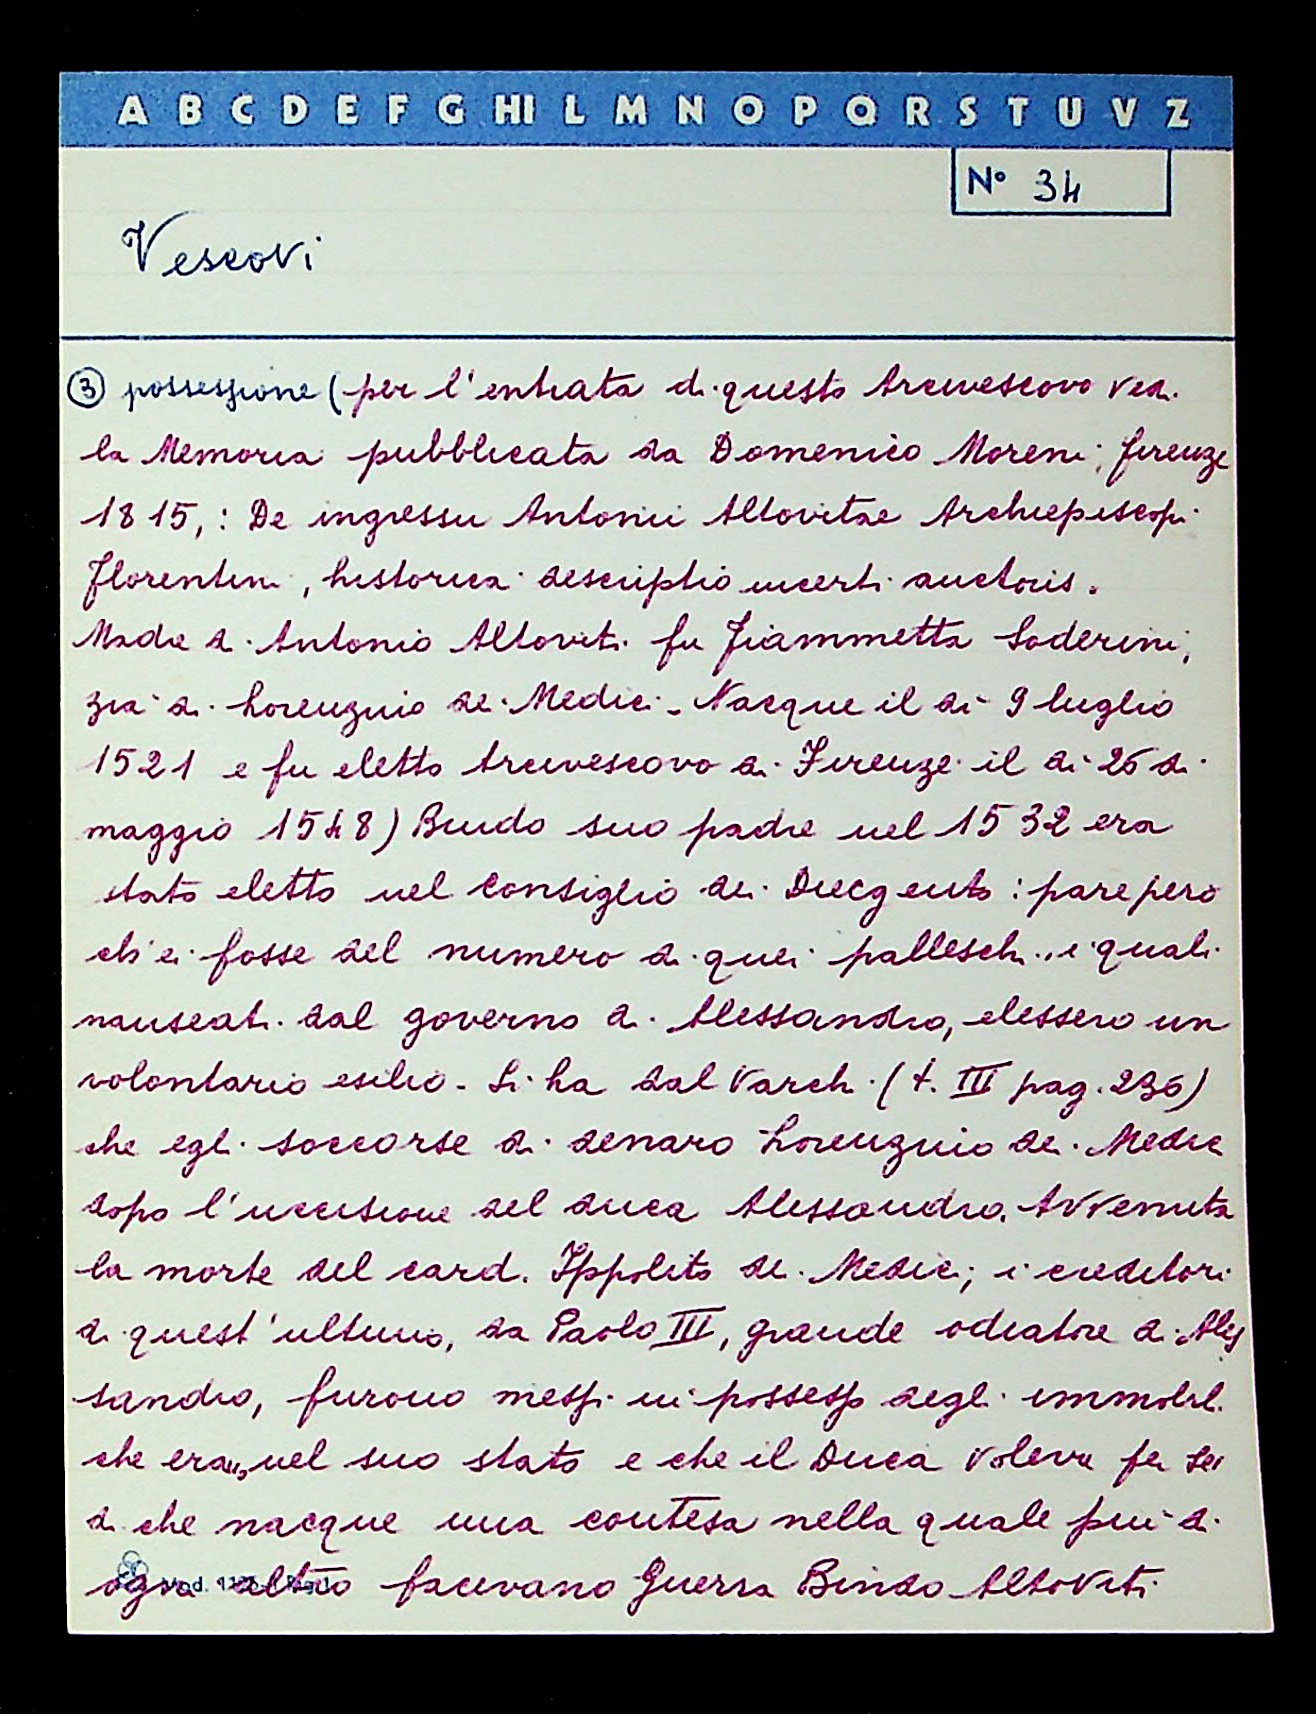 A B C D E F G HI L M N O P Q R S T U V Z
N° 34
Vescovi
③ possessione (per l'entrata di questo Arcivescovo vedi
la Memoria pubblicata da Domenico Moreni; firenze
1815,: De ingressu Antonii Altovitae Archiepiscopi
florentini, historica descriptio incerti auctoris.
Madre di Antonio Altoviti fu Fiammetta Soderini,
zia di Lorenzino de' Medici - Nacque il dì 9 luglio
1521 e fu eletto Arcivescovo di Firenze il dì 25 di
maggio 1548) Bindo suo padre nel 1532 era
stato eletto nel Consiglio dei Duecgento: pare però
ch'ei fosse del numero di quei palleschi, i quali
nauseati dal governo di Alessandro, elessero un
volontario esilio - Si ha dal Varchi (t. III pag. 236)
che egli soccorse di denaro Lorenzino dei Medici
dopo l'uccisione del duca Alessandro. Avvenuta
la morte del card. Ippolito dei Medici; i creditori
di quest'ultimo, da Paolo III, grande odiatore di Ales
sandro, furono messi in possesso degli immobili
che erano nel suo stato e che il Duca voleva per sé;
di che nacque una contesa nella quale più di
ogni altro facevano Guerra Bindo Altoviti